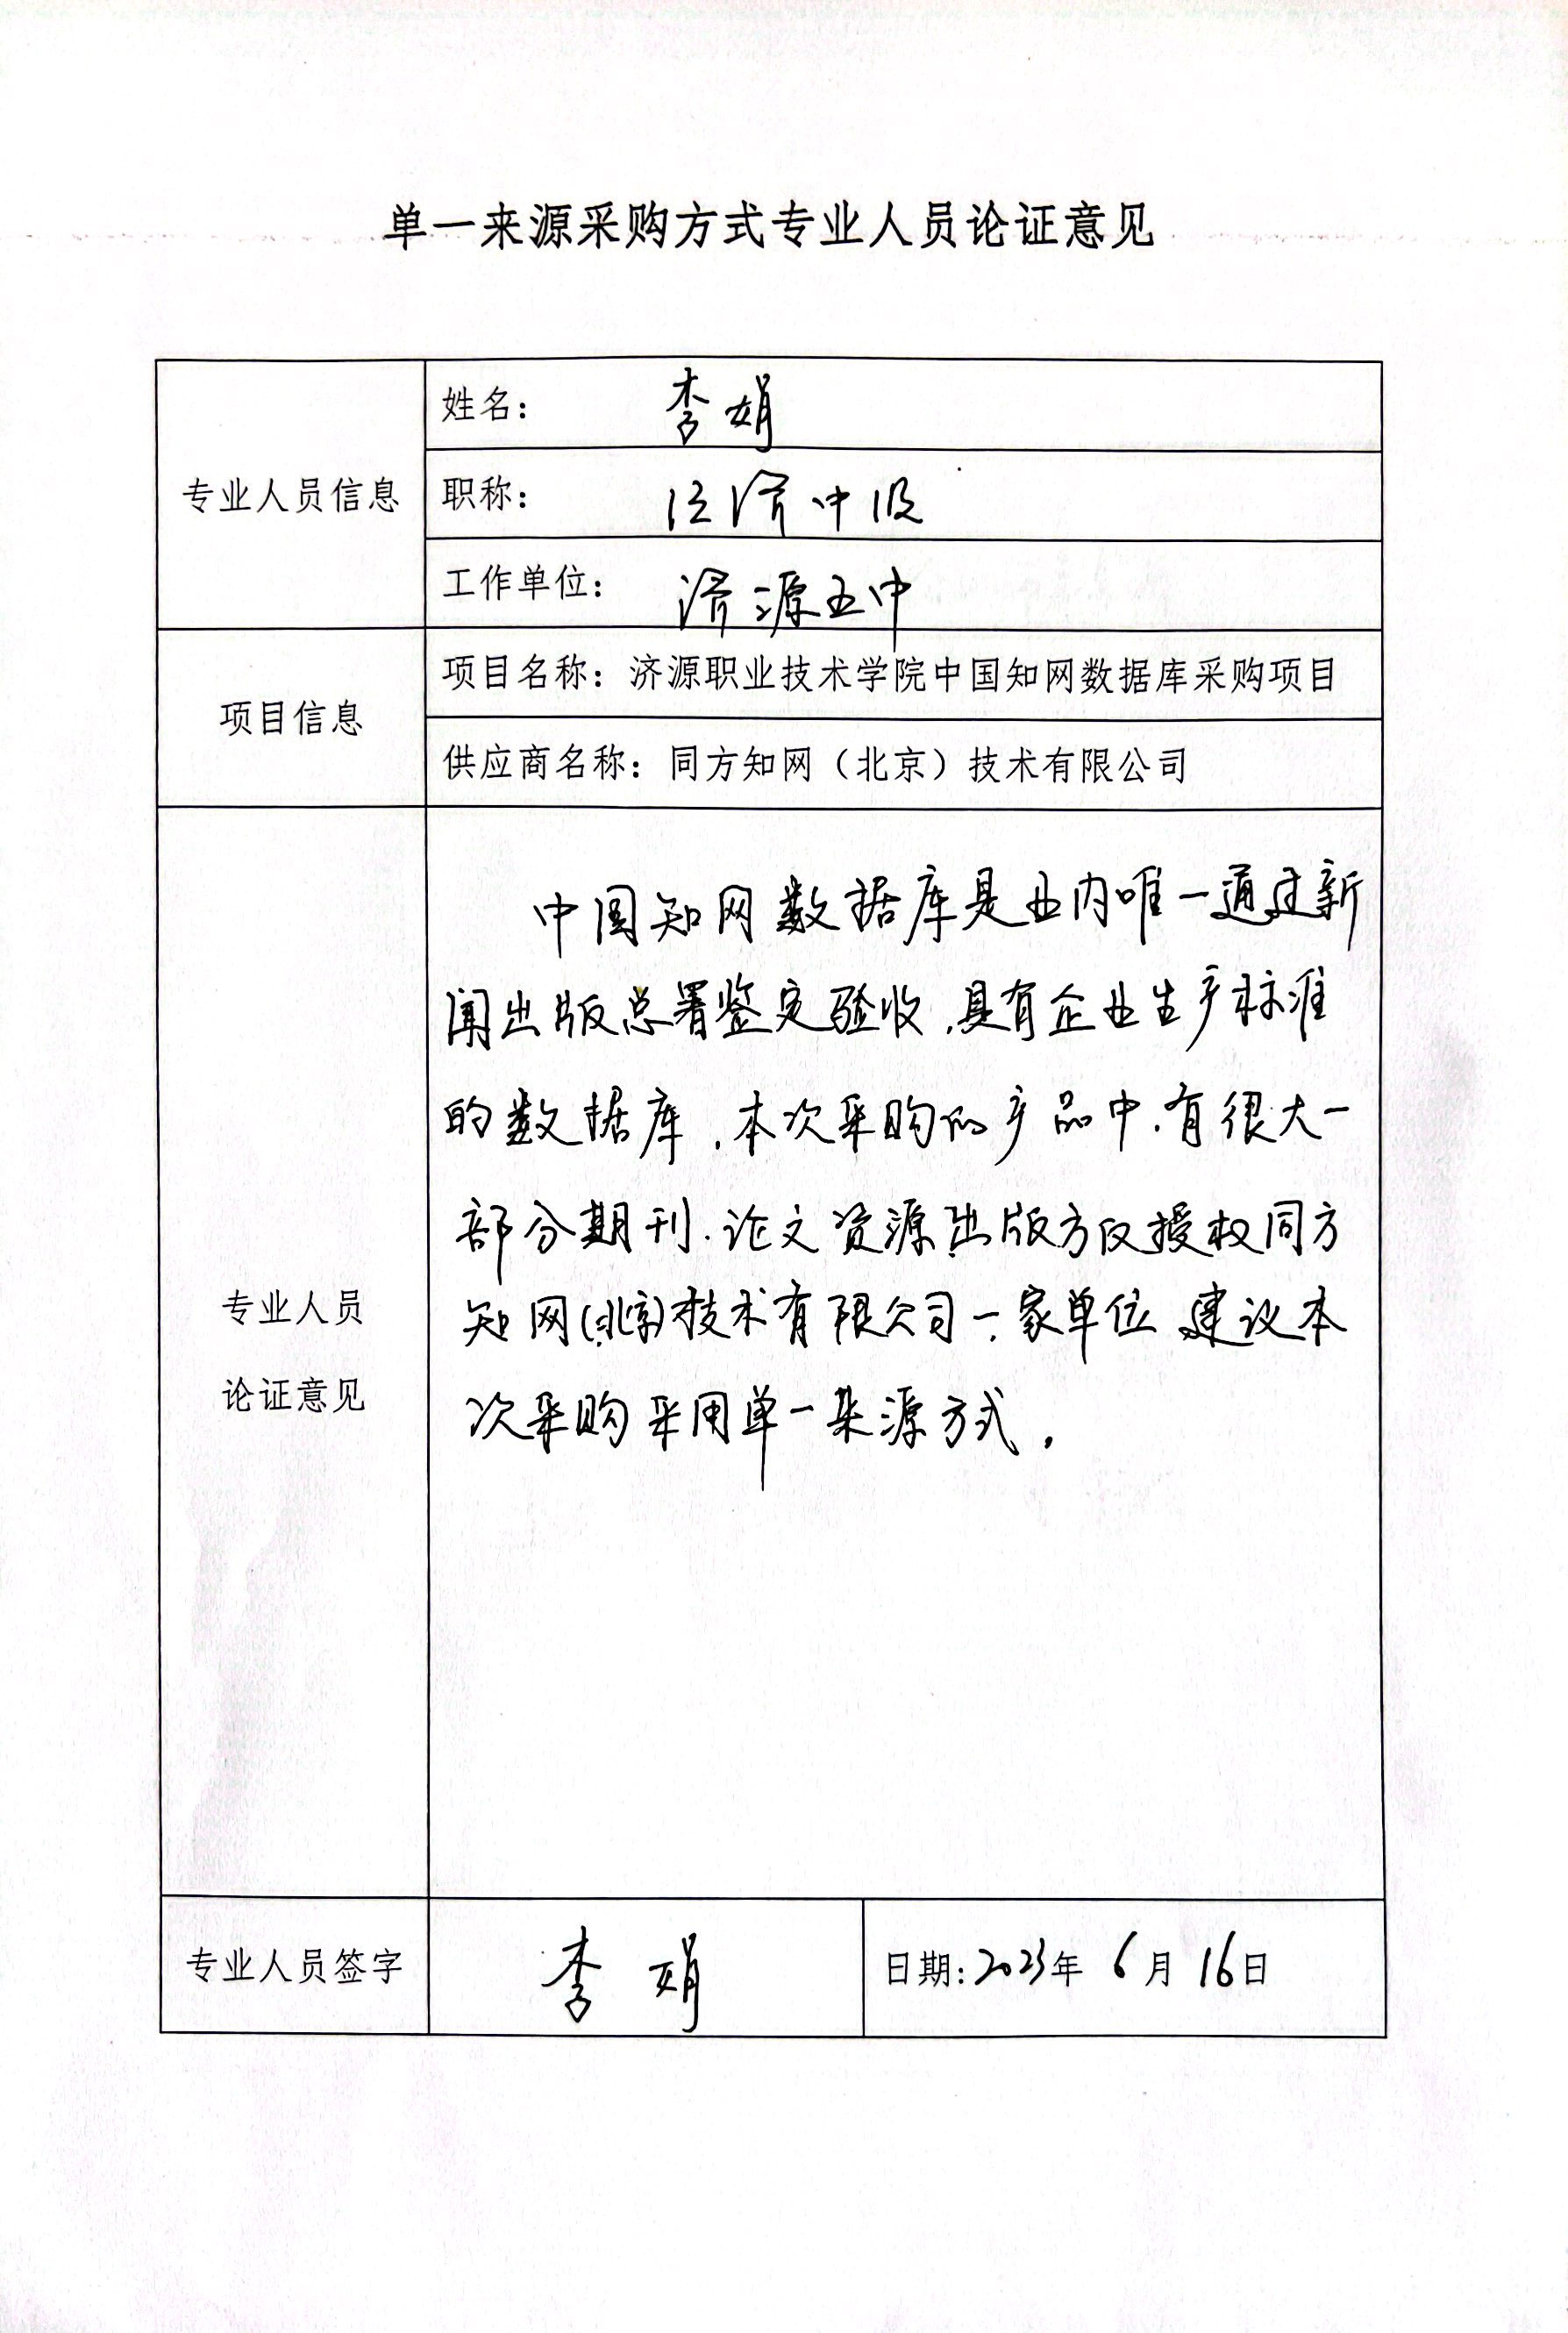 单一来源采购方式专业人员论证意见
专业人员信息
姓名: 李娟
职称: 经济中级
工作单位: 济源五中
项目信息
项目名称: 济源职业技术学院中国知网数据库采购项目
供应商名称: 同方知网（北京）技术有限公司
专业人员
论证意见
中国知网数据库是业内唯一通过新
闻出版总署鉴定验收,具有企业生产标准
的数据库,本次采购的产品中,有很大一
部分期刊、论文资源出版方仅授权同方
知网(北京)技术有限公司一家单位 建议本
次采购采用单一来源方式.
专业人员签字 李娟 日期: 2023年 6月 16日